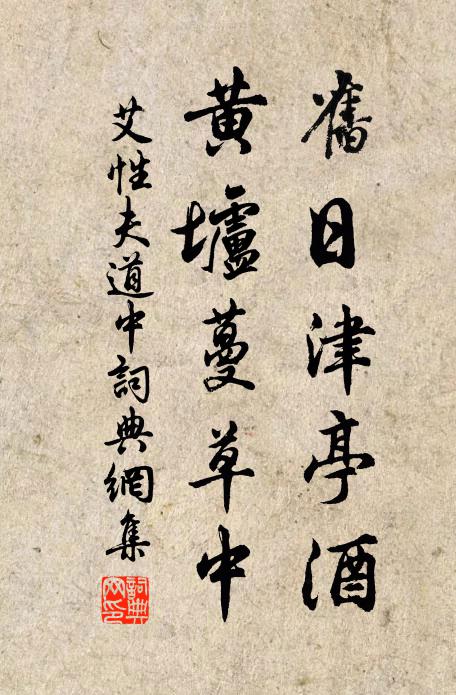 舊日津亭酒
黃壚蔓草中
艾性夫道中詞典網集
詞典網印